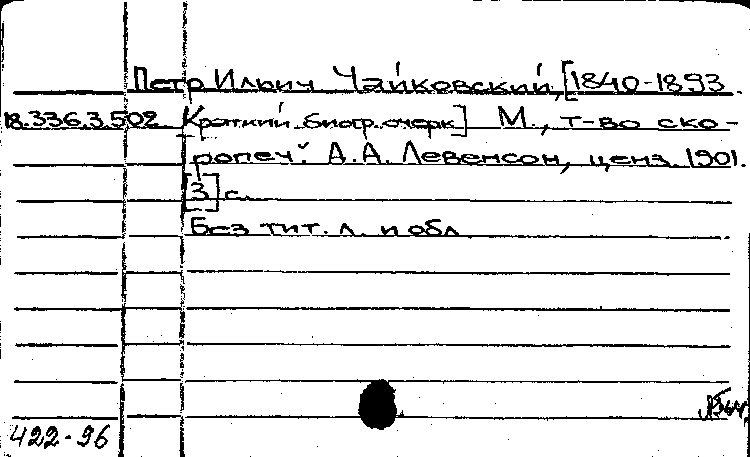 Петр Ильич Чайковский, [1840-1893.
18.336.3.502 Краткий биогр. очерк] М., т-во ско-
ропеч. А.А. Левенсон, ценз. 1901.
[3] с.
Без тит. л. и обл
422-96